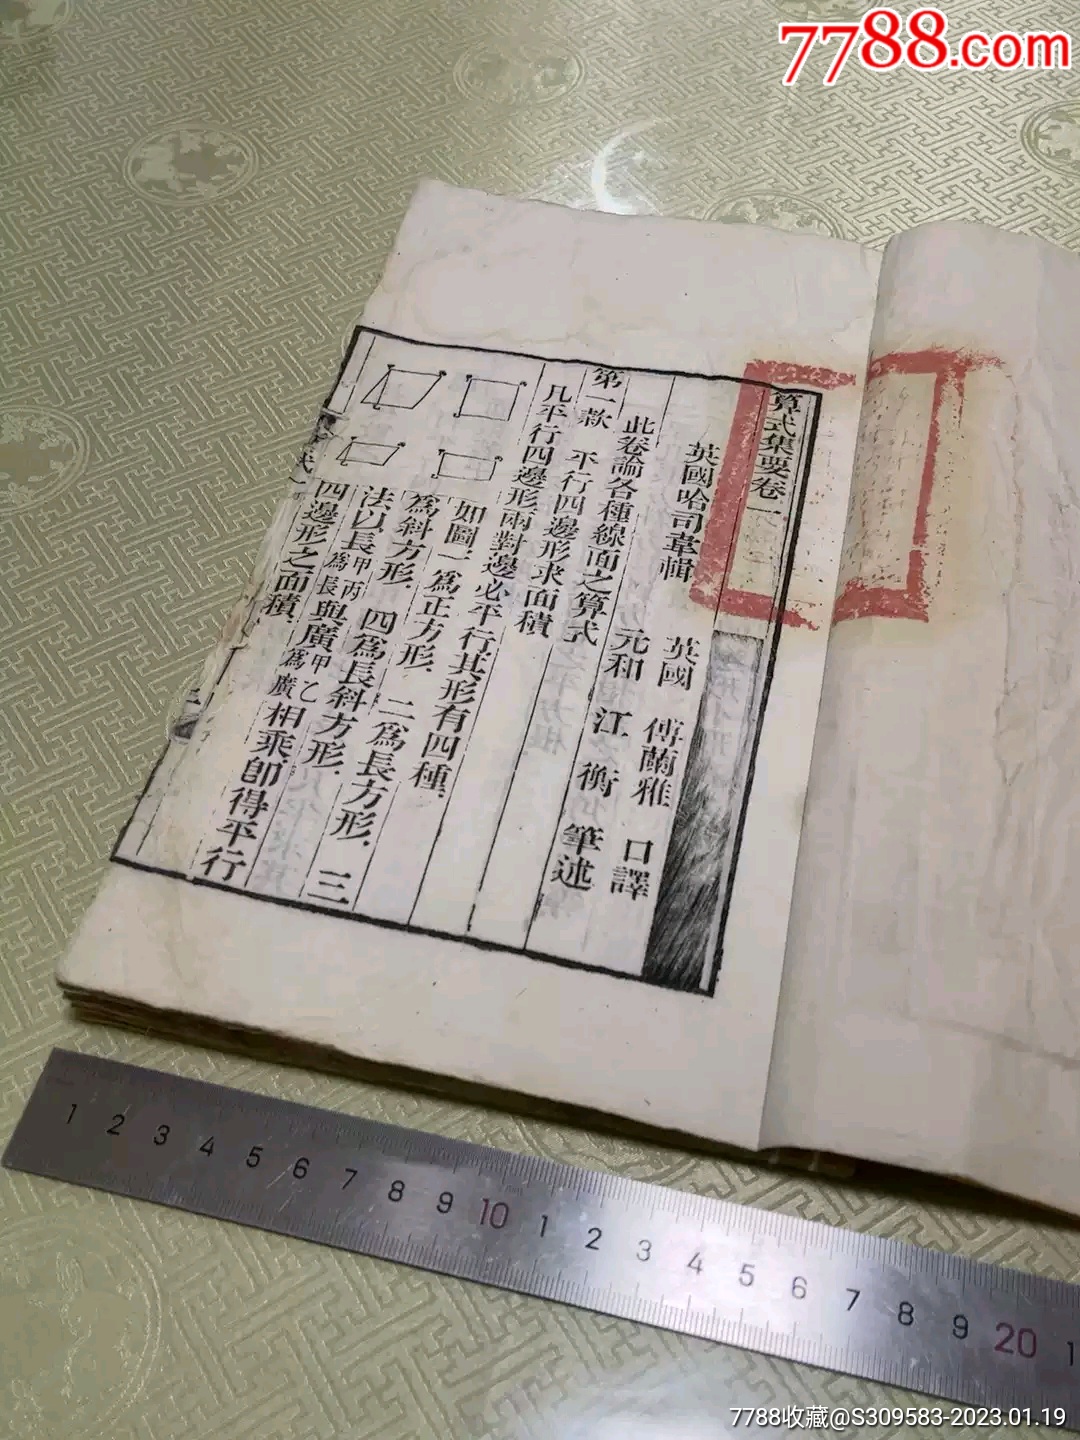 7788.com
算式集要卷一
英國哈司韋輯
英國 傅蘭雅 口譯
元和 江衡 筆述
此卷論各種線面之算式
第一款 平行四邊形求面積
凡平行四邊形兩對邊必平行其形有四種
如圖一爲正方形 二爲長方形 三
爲斜方形 四爲長斜方形
法以長甲丙爲長與廣甲乙爲廣相乘卽得平行
四邊形之面積
1 2 3 4 5 6 7 8 9 10 1 2 3 4 5 6 7 8 9 20 1
7788收藏@S309583-2023.01.19